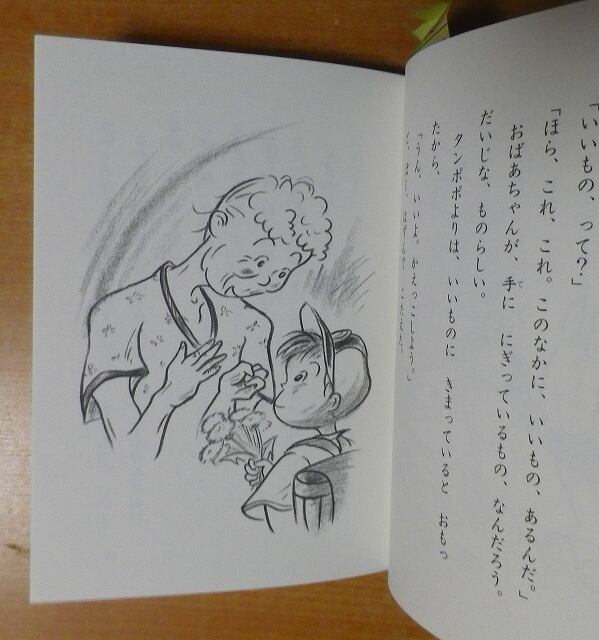 「いいもの、って？」
「ほら、これ、これ。このなかに、いいもの、あるんだ。」
おばあちゃんが、手に　にぎっているもの、なんだろう。
だいじな、ものらしい。
タンポポよりは、いいものに　きまっていると　おもっ
たから、
「うん、いいよ。かえっこしよう。」